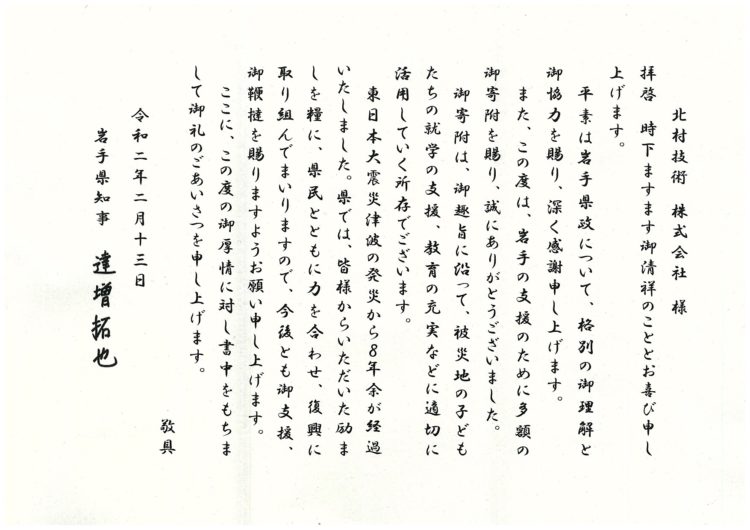 北村技術　株式会社　様
拝啓　時下ますます御清祥のこととお喜び申し
上げます。
平素は岩手県政について、格別の御理解と
御協力を賜り、深く感謝申し上げます。
また、この度は、岩手の支援のために多額の
御寄附を賜り、誠にありがとうございました。
御寄附は、御趣旨に沿って、被災地の子ども
たちの就学の支援、教育の充実などに適切に
活用していく所存でございます。
東日本大震災津波の発災から8年余が経過
いたしました。県では、皆様からいただいた励ま
しを糧に、県民とともに力を合わせ、復興に
取り組んでまいりますので、今後とも御支援、
御鞭撻を賜りますようお願い申し上げます。
ここに、この度の御厚情に対し書中をもちま
して御礼のごあいさつを申し上げます。
敬具
令和二年二月十三日
岩手県知事　達増拓也